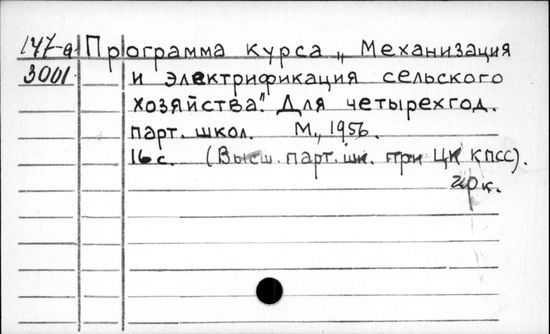 147-а Программа курса „Механизация
3001. и электрификация сельского
хозяйства". Для четырехгод.
парт. школ. М., 1956.
16 с. (Высш. парт. шк. при ЦК КПСС).